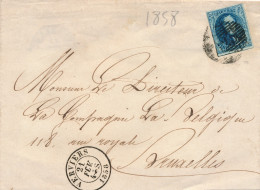 1858
Monsieur le Directeur de
la Compagnie La Belgique
118. rue royale
Bruxelles
VERVIERS
21
1858